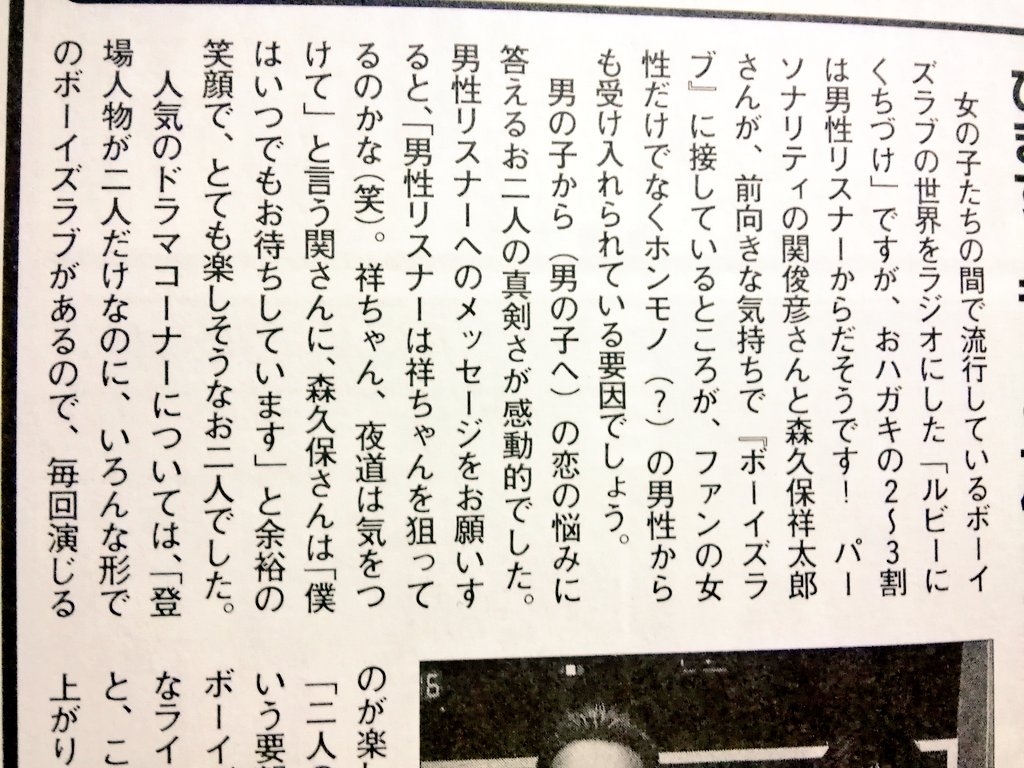 女の子たちの間で流行しているボーイ
ズラブの世界をラジオにした「ルビーに
くちづけ」ですが、おハガキの2〜3割
は男性リスナーからだそうです！　パー
ソナリティの関俊彦さんと森久保祥太郎
さんが、前向きな気持ちで『ボーイズラ
ブ』に接しているところが、ファンの女
性だけでなくホンモノ（？）の男性から
も受け入れられている要因でしょう。
　男の子から（男の子へ）の恋の悩みに
答えるお二人の真剣さが感動的でした。
男性リスナーへのメッセージをお願いす
ると、「男性リスナーは祥ちゃんを狙って
るのかな（笑）。祥ちゃん、夜道は気をつ
けて」と言う関さんに、森久保さんは「僕
はいつでもお待ちしています」と余裕の
笑顔で、とても楽しそうなお二人でした。
　人気のドラマコーナーについては、「登
場人物が二人だけなのに、いろんな形で
のボーイズラブがあるので、毎回演じる
のが楽し
「二人の
いう要
ボーイ
なライ
と、こ
上がり
6